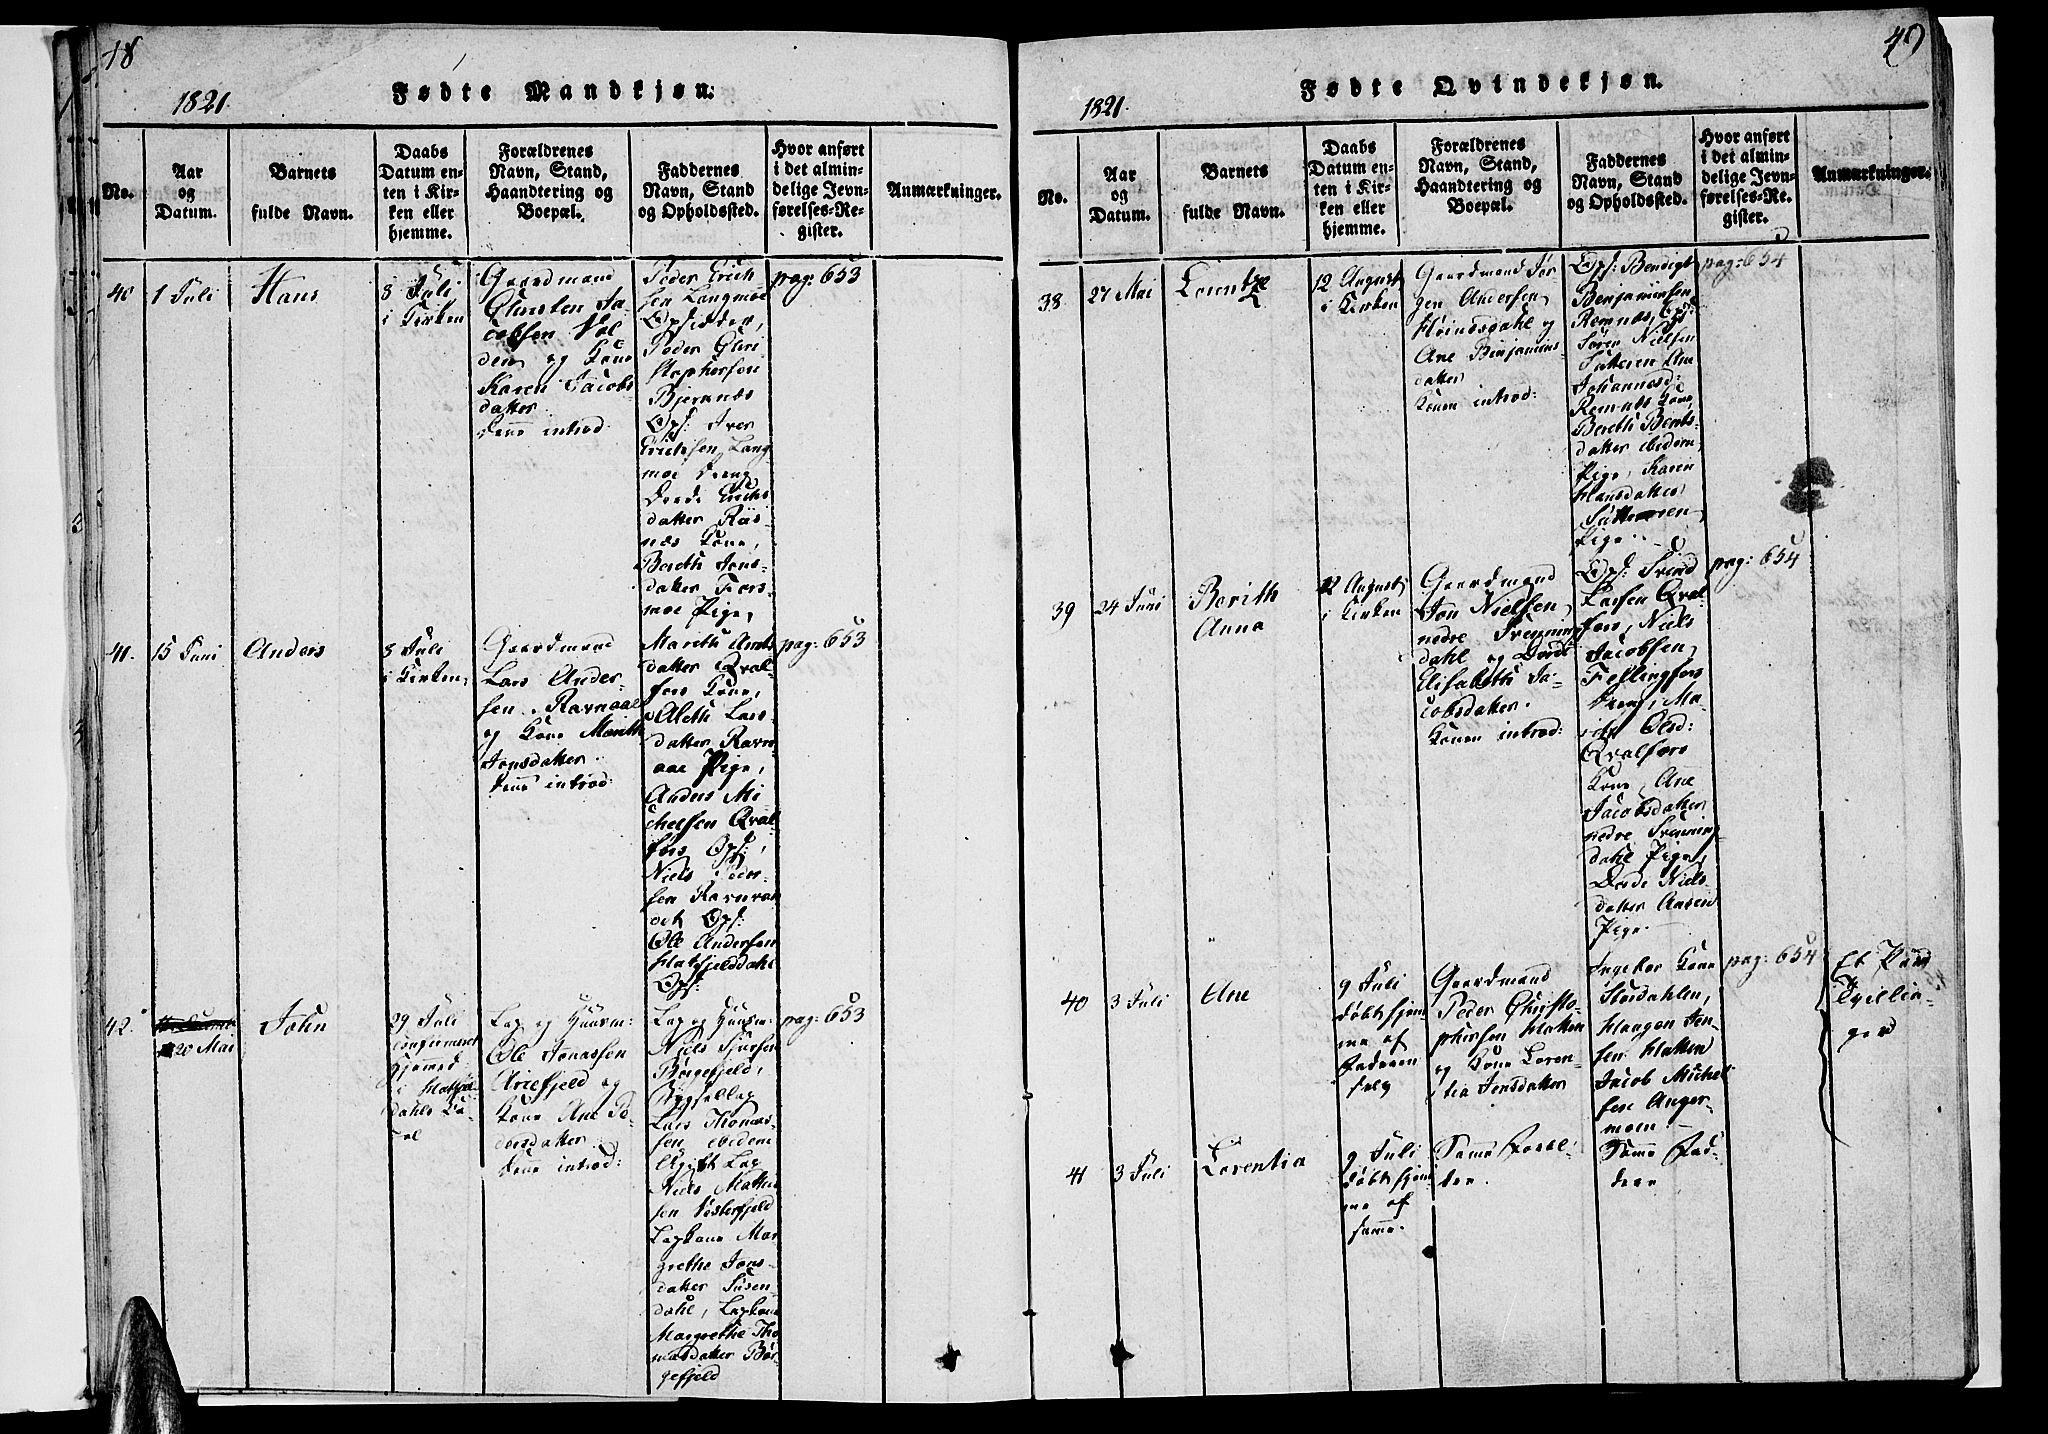 48
1821.
Fødte Mandkjøn.
No.
Aar
og
Datum.
Barnets
fulde Navn.
Daabs
Datum en-
ten i Kir-
ken eller
hjemme.
Forældrenes
Navn, Stand,
Haandtering og
Boepæl.
Faddernes
Navn, Stand
og Opholdssted.
Hvor anført
i det almin-
delige Jevn-
førelses-Re-
gister.
Anmærkninger.
40
1 Juli
Hans
8 Juli
i Kirken
Gaardmand
Christen Ja-
cobsen Vol-
den og Kone
Karen Jacobs
datter
Kone introd
Peder Erich
sen Langmoe
Opsidder,
Peder Chri
stophersen
Bjernæs
Ops: Iver
Erichsen Lang
moe Dreng
Dorde Erichs
datter Riis-
næs Kone,
Berith Jons-
datter Fors-
moe Pige,
pag: 653
41.
15 Juni
Anders
8 Juli
i Kirken,
Gaardmand
Lars Ander-
sen, Ravnaae
og Kone Marith
Jonsdatter.
Kone introd:
Marith Arnts
datter Qval
fors Kone,
Aleth Lars-
datter Ravn-
aae Pige,
Anders Mi
chelsen Qval
fors Ops:,
Niels Peder-
sen Ravnvas
Ops:
Ole Andersen
Hatfjelddahl
Ops:
pag: 653
42.
20 Mai
John
29 Juli
confirmeret
hjemmed
i Hatfjel
dahls Ca-
pel
Lap og Huusm:
Ole Jonassen
Ariefjeld og
Kone Ane Pe-
dersdatter
Kone introd:
Lap og Huusm:
Niels Sjursen
Børgefjeld,
Bygsellap
Lars Thomas-
sen ibidem
Niels Matthi
sen Vesterfjeld
Lapkone Mar
grethe Jons-
datter Susen-
dahl, Lapkone
Margrethe Tho
masdatter Bør-
gefjeld
pag: 653
49
1821.
Fødte Qvindekjøn.
No.
Aar
og
Datum.
Barnets
fulde Navn.
Daabs
Datum en-
ten i Kir-
ken eller
hjemme.
Forældrenes
Navn, Stand,
Haandtering og
Boepæl.
Faddernes
Navn, Stand
og Opholdssted.
Hvor anført
i det almin-
delige Jevn-
førelses-Re-
gister.
Anmærkninger.
38
27 Mai
Lorentze
12 August
i Kirken
Gaardmand Jør
gen Andersen,
og
Ane Benjamins-
datter
Konen introd:
Ops: Bendigt
Benjaminsen
Remnæs, Ops:
Søren Nielsen
Sutteren Ane
Johannesd:
Remnæs Kone,
Berith Bents-
datter ibidem
Pige, Karen
Hansdatter
Sutteren,
Pige
pag: 654
39
24 Juni
Berith
Anna
12 August
i Kirken
Gaardmand
Jon Nielsen,
nedre Svenning
dahl og Dorde
Elisabeth Ja-
cobsdatter.
Konen introd:
Ops: Svend
Larsen Qval
fors, Niels
Jacobsen,
Fellingfors
Dreng, Ma-
rith Olsd:
Qvalfors
Kone, Ane
Jacobsdatter
nedre Svenning
dahl Pige,
Dorde Niels-
datter Aasen
Pige.
pag: 654
40
3 Juli
Ane
9 Juli
døbt hjem-
me af
Faderen
selv
Gaardmand
Peder Christo-
phersen Hatten
og Kone Loren-
tia Jensdatter
Ingebor Kone
Stordahlen,
Haagen Jen-
sen Hatten
Jacob Michel
sen Anger-
moen
pag: 654
Et Paar
Tvillin-
ger
41
3 Juli
Lorentia
9 Juli
døbt hjem-
me af
samme.
Samme Foræl-
dre.
Samme Fad-
dere